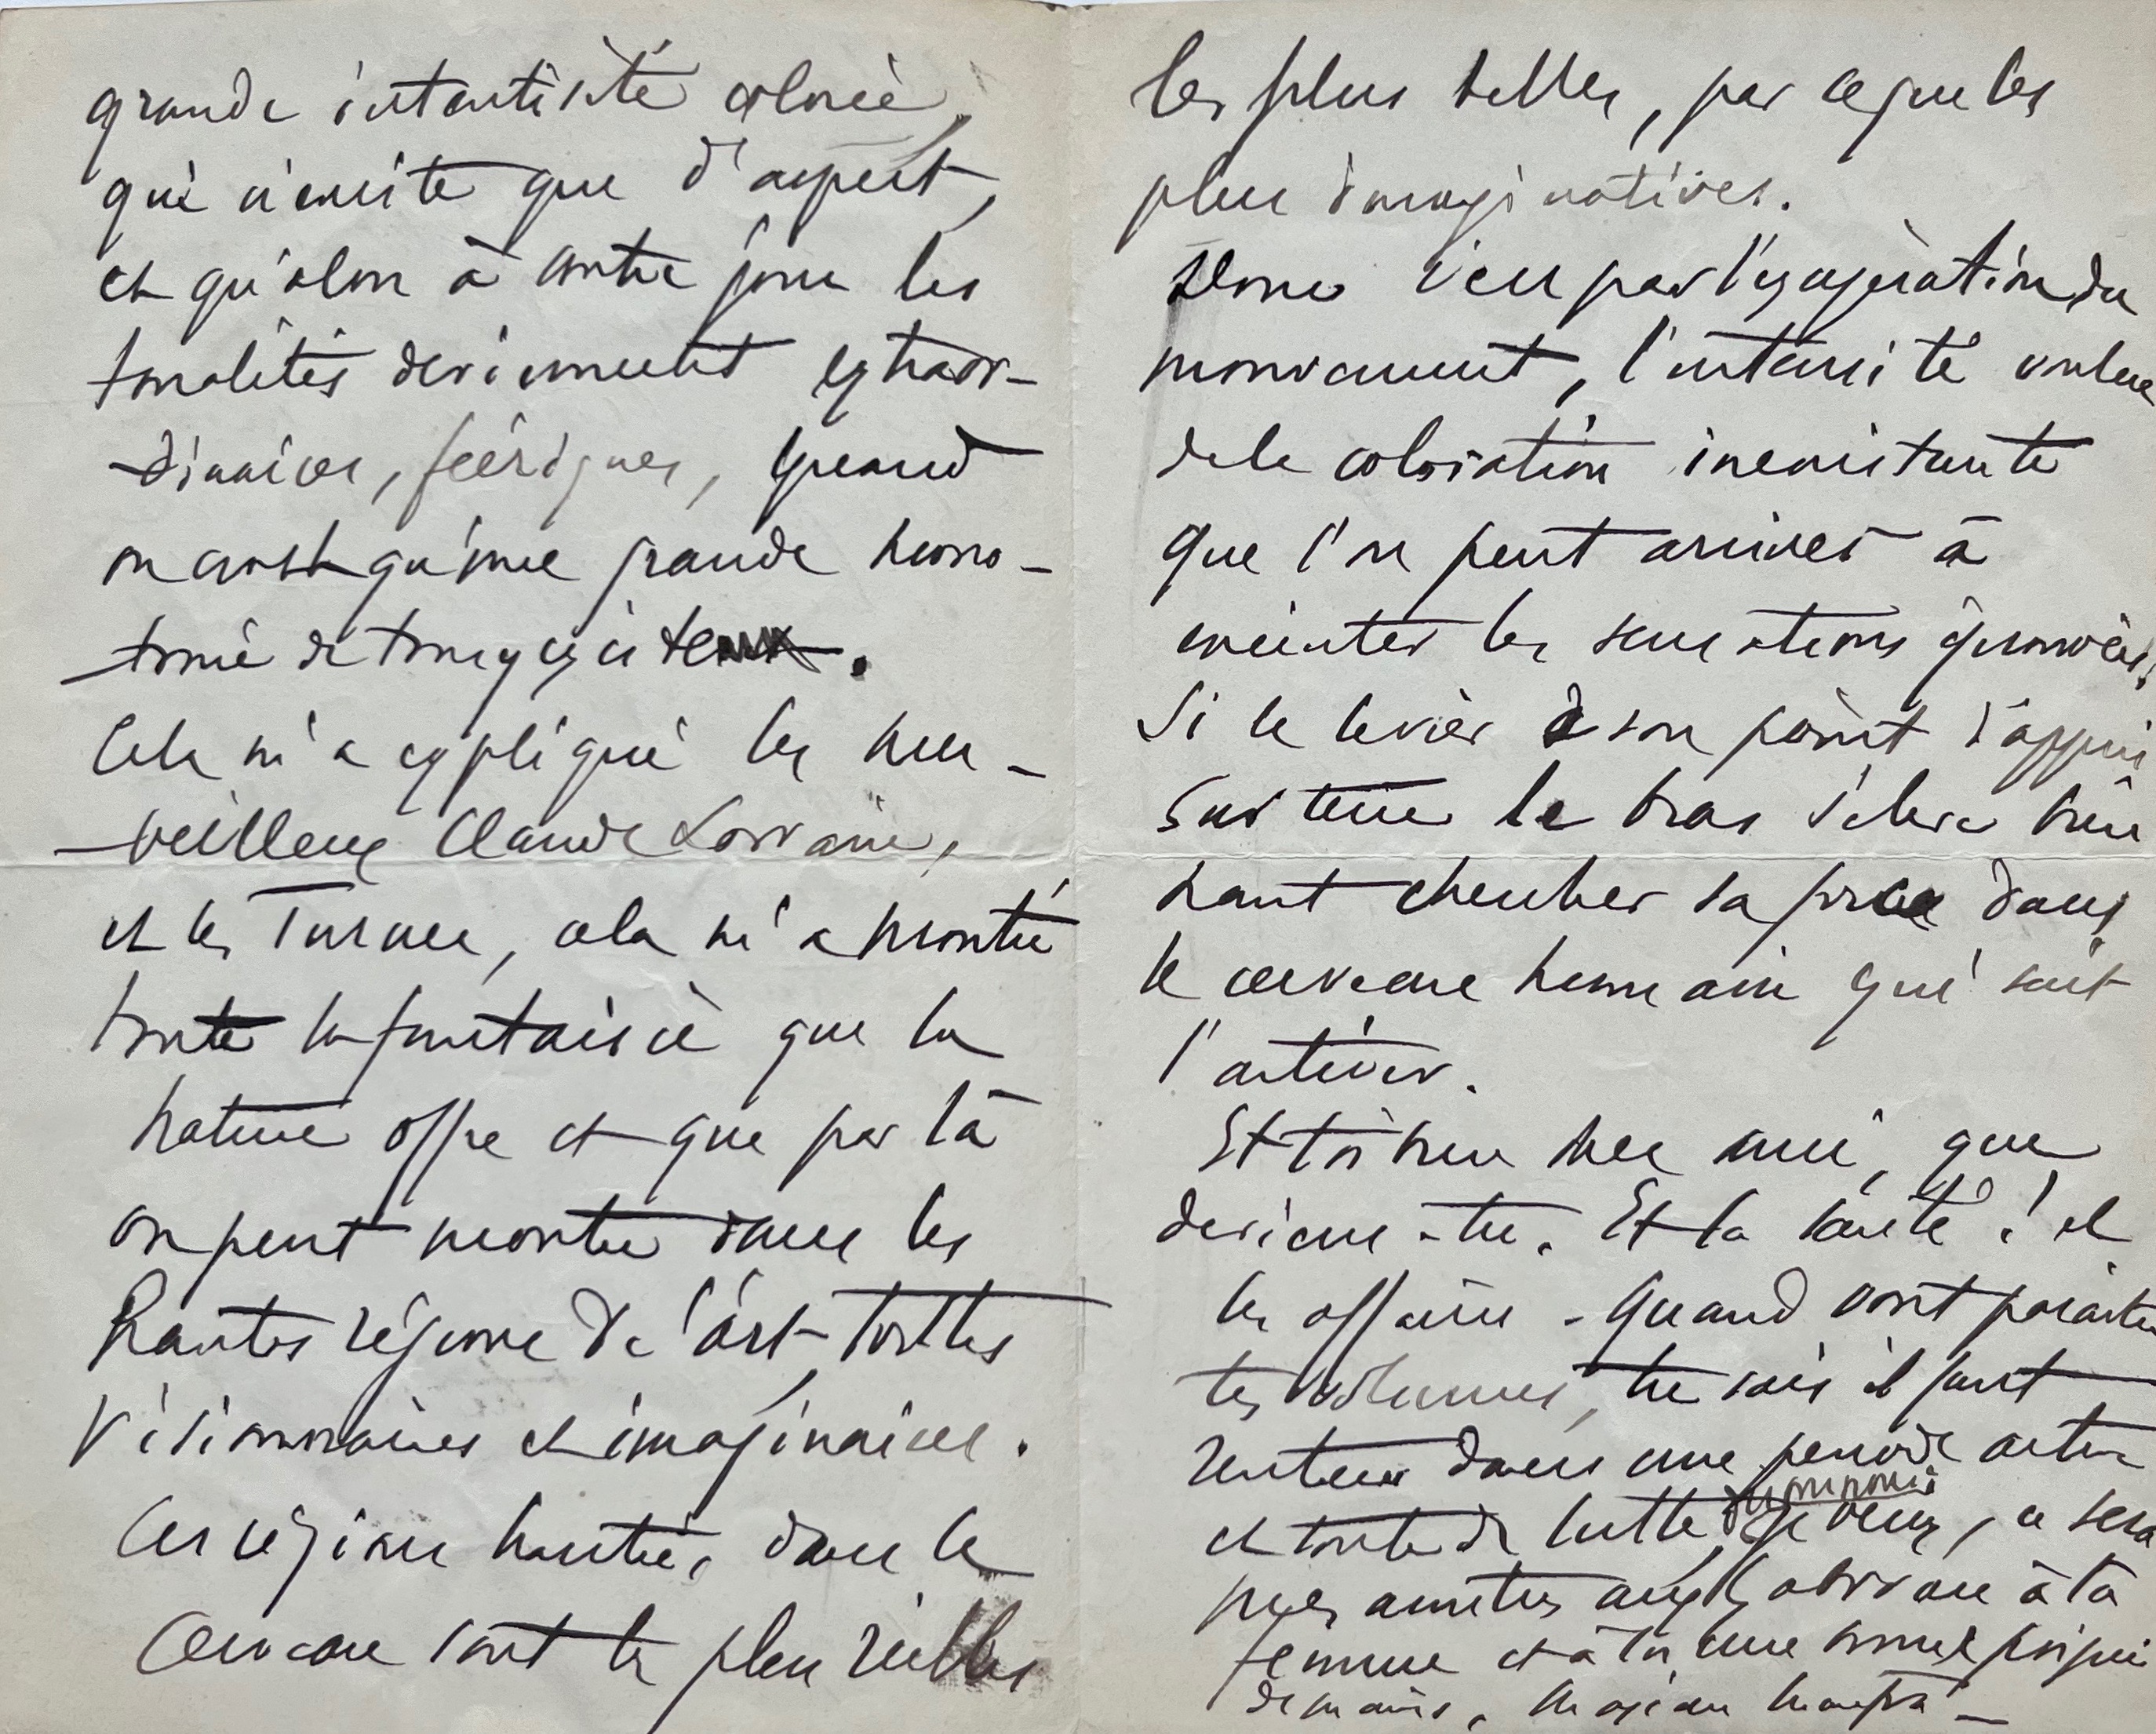 grande intentisité colorée,
qui n'existe que d'aspect,
et qu'alors à contre jour les
tonalités deviennent extraor-
-dinaires, féériques, quand
on croit qu'une grande mono-
-tonie de tons y existent.
Cela m'a expliqué les mer-
-veilleux Claude Lorrain,
et les Turner, cela m'a montré
toute la fantaisie que la
nature offre et que par là
on peut monter dans les
hautes régions de l'art toutes
visionnaires et imaginaires.
Ces régions hantées dans le
cerveau sont les plus réelles
les plus belles, par ce que les
plus imaginatives.
Donc c'est par l'exagération du
mouvement, l'intensité voulue
de la coloration inexistante
que l'on peut arriver à
inventer les sensations éprouvées,
Si le levier a son point d'appui
sur terre le bras s'élève bien
haut chercher sa force dans
le cerveau humain qui sait
l'activer.
Et toi mon cher ami, que
deviens-tu. Et la santé! et
les affaires - Quand vont paraître
tes volumes, tu sais il faut
rentrer dans une période active
et toute de lutte, si je veux, ce sera
mes amitiés au revoir à ta
femme et à toi une bonne poignée
de mains,